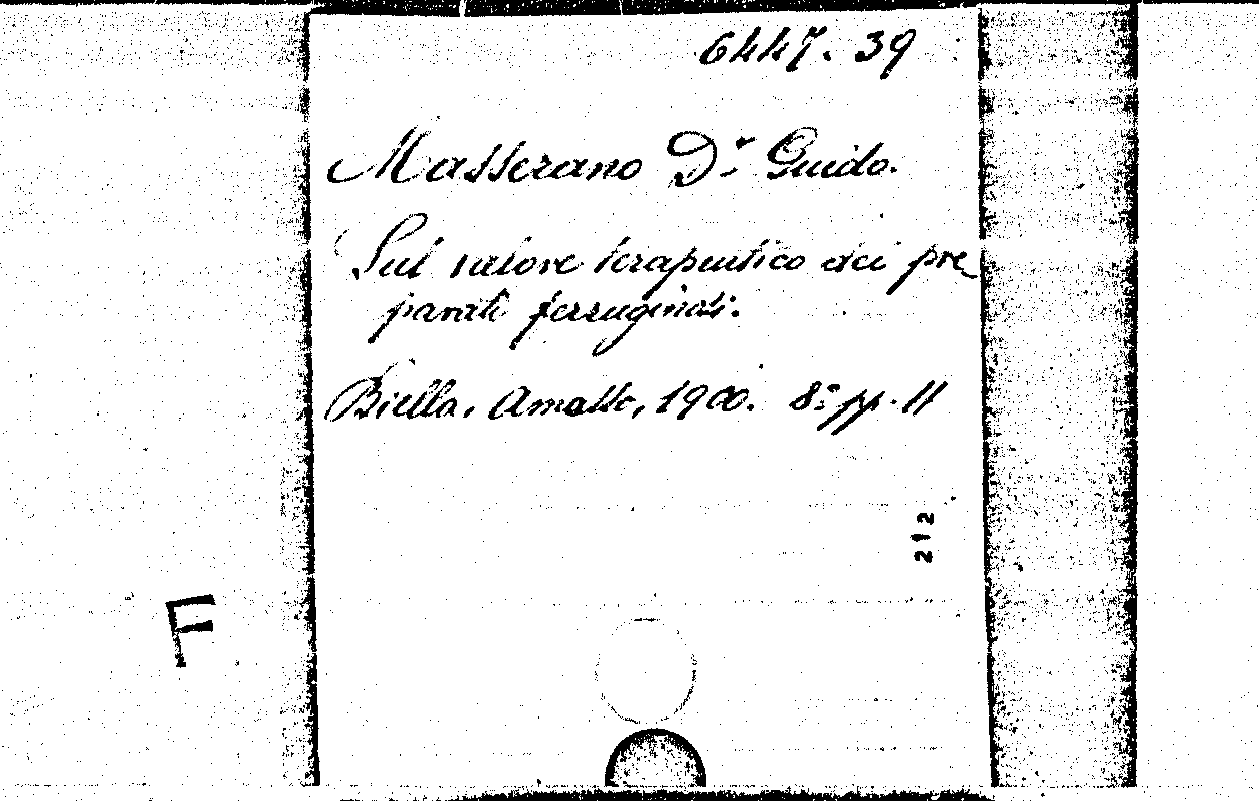 6447. 39
Masserano Dr. Guido.
Sul valore terapeutico dei pre
parati ferruginosi.
Biella. Amosso, 1900. 8° pp. 11
212
F